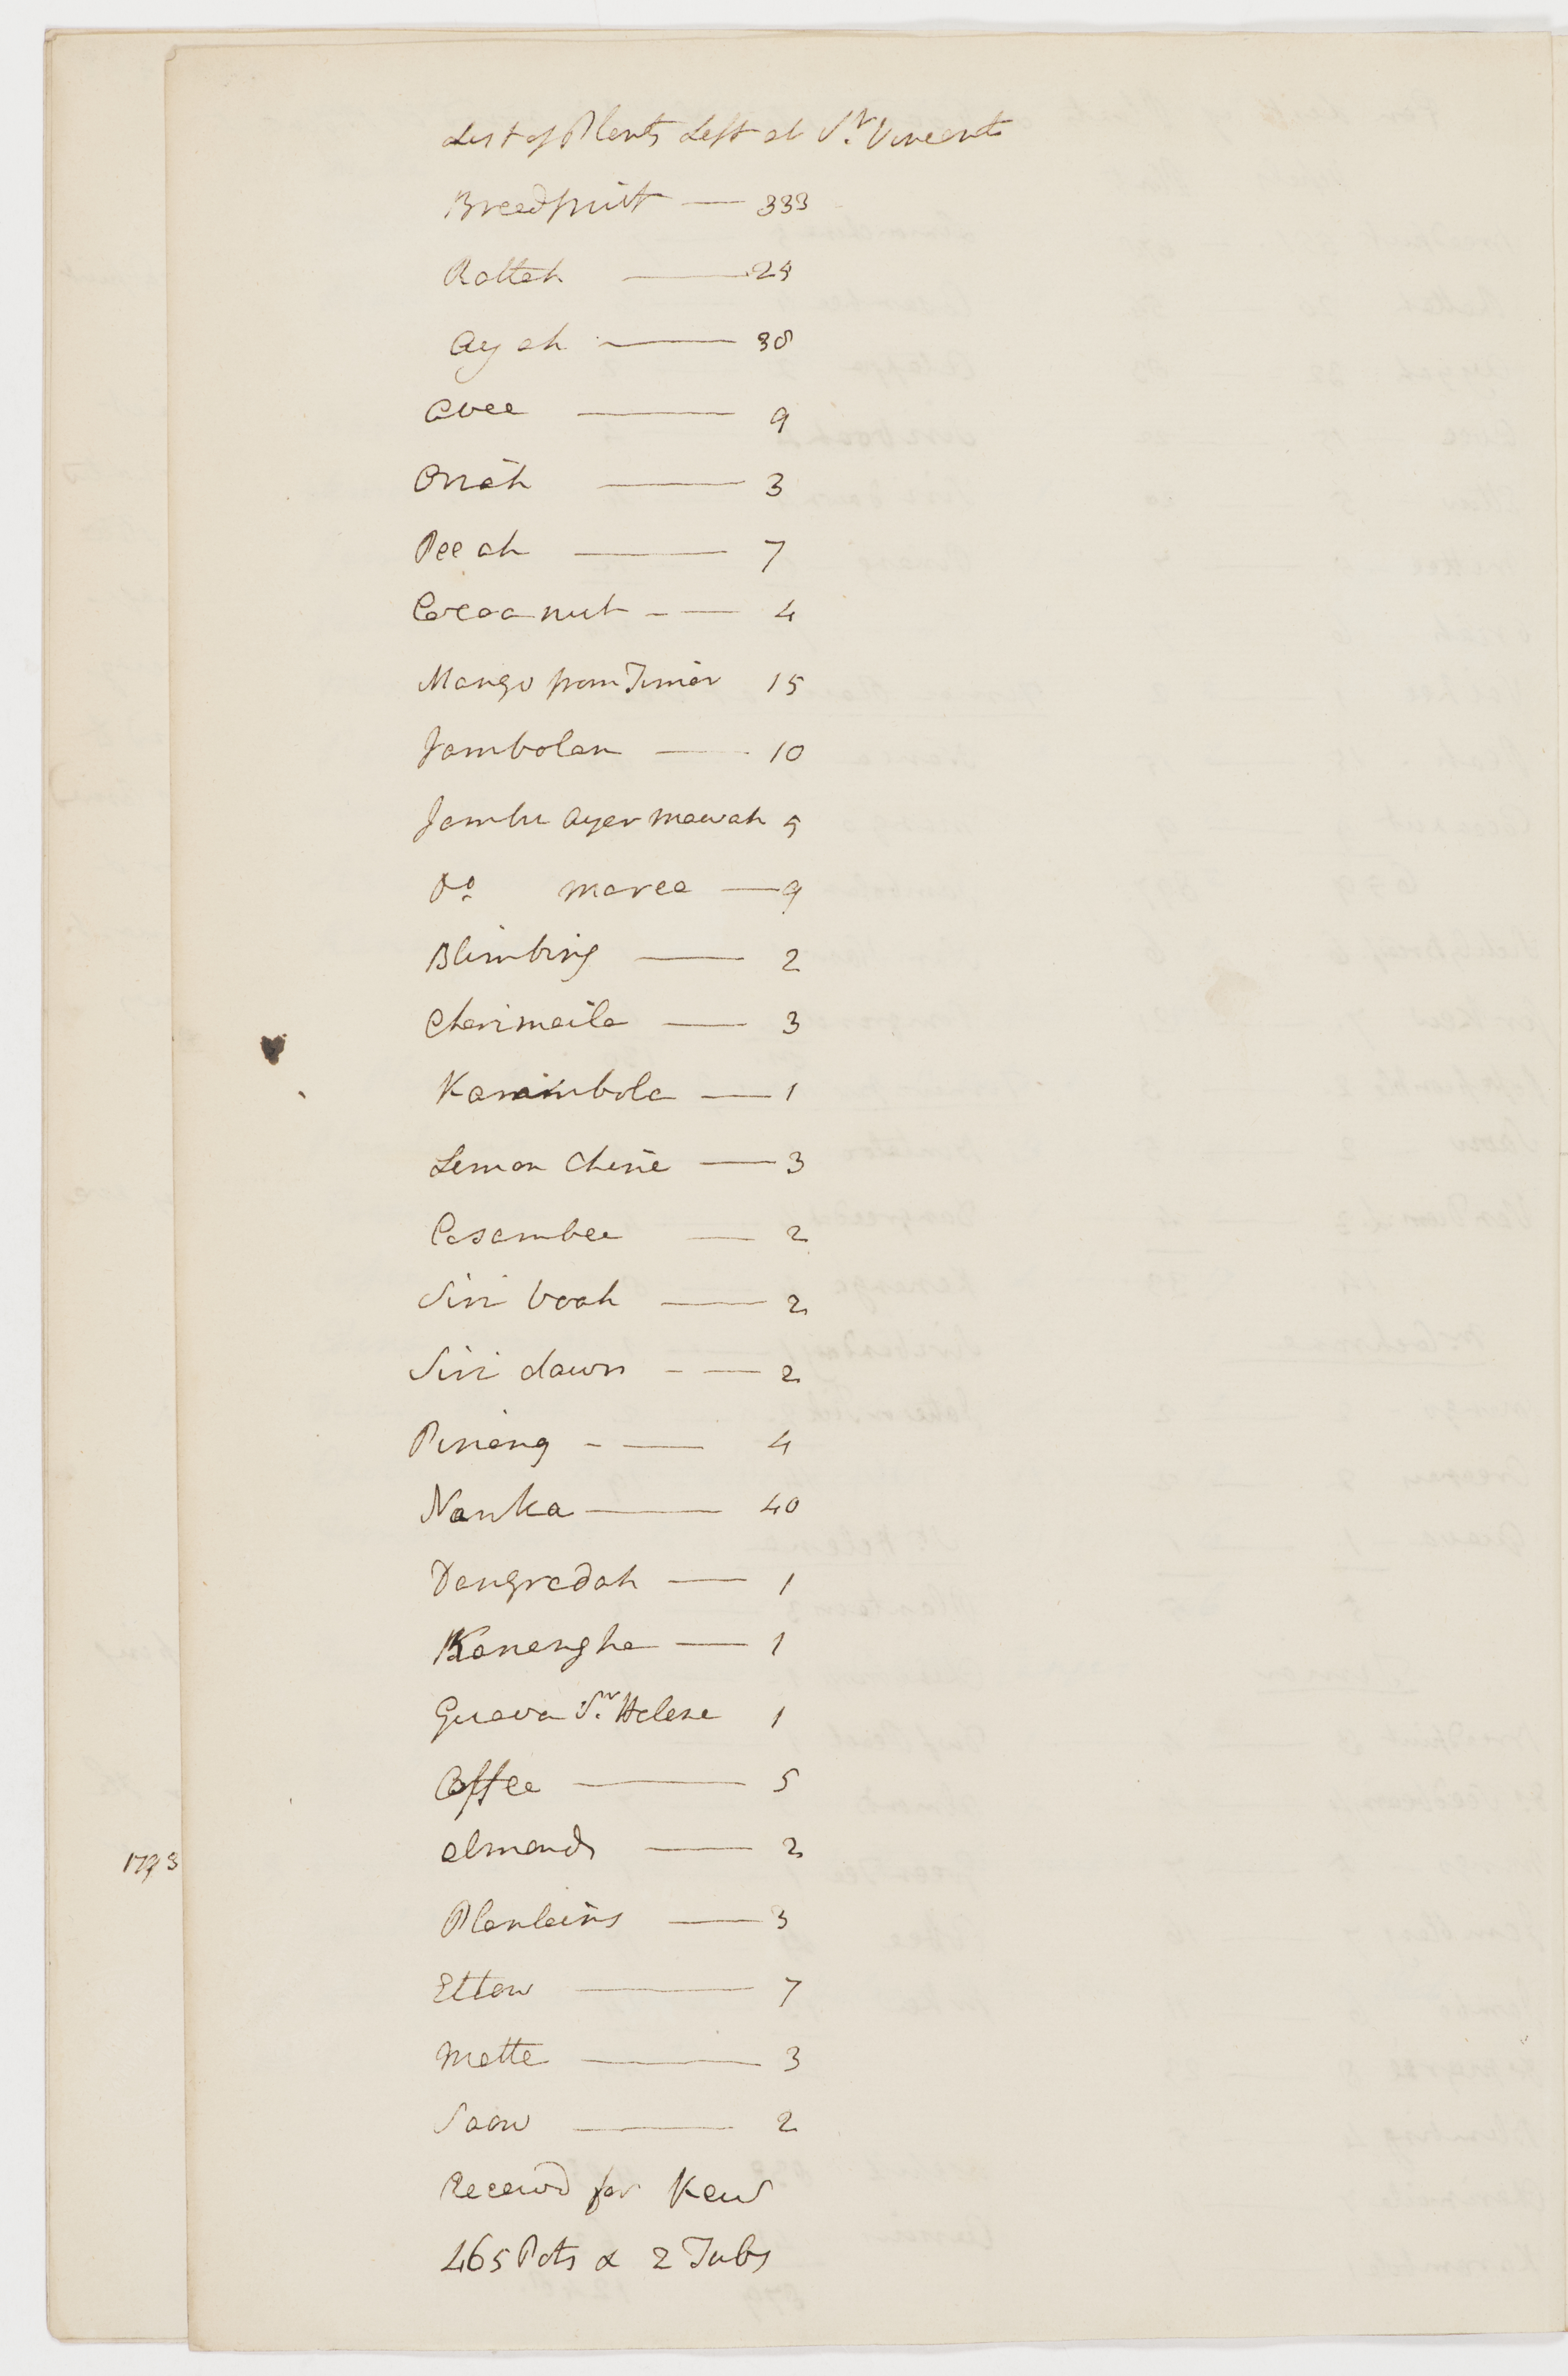 List of Plants Left at St. Vincents
Breadfruit — 333
Rattah — 24
Ayah — 38
Avee — 9
Orrah — 3
Peeah — 7
Cocoanut - — 4
Mango from Timor 15
Jambolan — 10
Jambu Ayer Mawah 5
Do. maree — 9
Blimbing — 2
Cherimaila — 3
Karambola — 1
Lemon Chine — 3
Cosambee — 2
Siri boah — 2
Siri dawn - — 2
Pinang - — 4
Nanka — 40
Dangradah — 1
Kanangha — 1
Guava St. Helena 1
Coffee — 5
almonds — 2
Plantains — 3
Ettow — 7
Matte — 3
Saow — 2
Receivd for Kew
465 Pots & 2 Tubs
1793